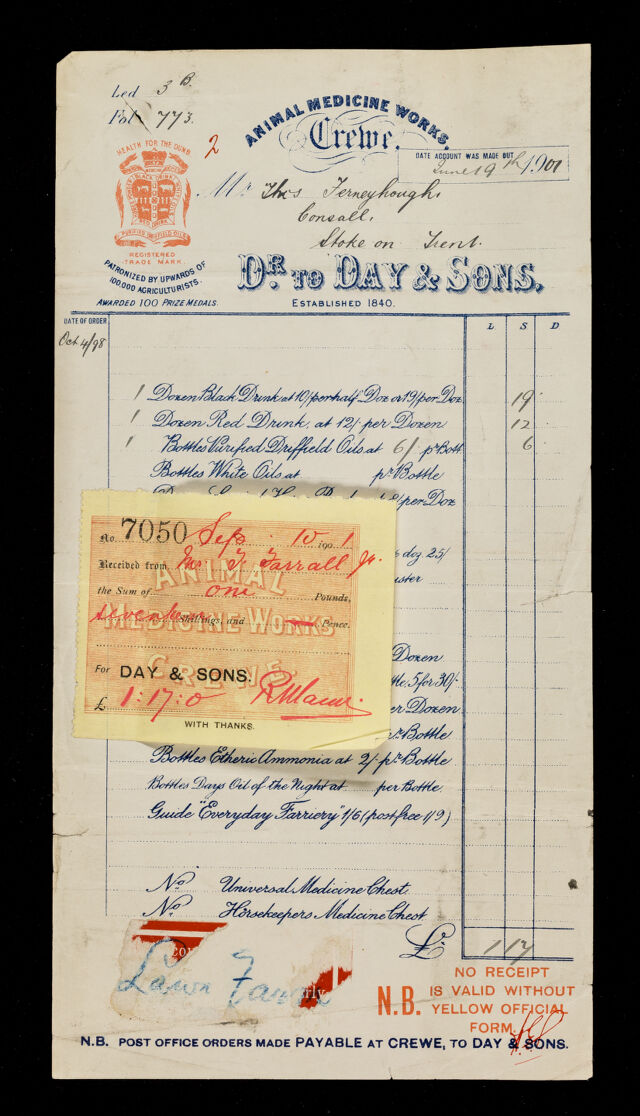 Led 3 B.
Fol 773.
2
ANIMAL MEDICINE WORKS,
Crewe,
DATE ACCOUNT WAS MADE OUT
June 19th 1901
HEALTH FOR THE DUMB
BLACK DRINK
RED DRINK
PURIFIED DRIFFIELD OILS
REGISTERED
TRADE MARK.
PATRONIZED BY UPWARDS OF
100,000 AGRICULTURISTS.
AWARDED 100 PRIZE MEDALS.
Mr Thos Ferneyhough,
Consall,
Stoke on Trent.
DR. TO DAY & SONS.
ESTABLISHED 1840.
DATE OF ORDER
L S D
Oct 4/98
1 Dozen Black Drink at 10/- per half Doz or 19/- per Doz. 19
1 Dozen Red Drink at 12/- per Dozen 12
1 Bottles Purified Driffield Oils at 6/- pr Bott 6
Bottles White Oils at pr Bottle
per Doz
doz 25/
Dozen
5 for 30/-
er Dozen
pr Bottle
Bottles Etheric Ammonia at 2/- pr Bottle
Bottles Days Oil of the Night at per Bottle
Guide "Everyday Farriery" 1/6 (post free 1/9)
No. Universal Medicine Chest
No. Horsekeepers Medicine Chest
£. 1 17
No. 7050 Sep 10 1901
Received from Mr T. Farrall Jr.
the Sum of one Pounds,
seventeen Shillings, and — Pence.
ANIMAL
MEDICINE WORKS
CREWE.
For DAY & SONS.
£ 1:17:0
WITH THANKS.
NO RECEIPT
N.B. IS VALID WITHOUT
YELLOW OFFICIAL
FORM.
N.B. POST OFFICE ORDERS MADE PAYABLE AT CREWE, TO DAY & SONS.